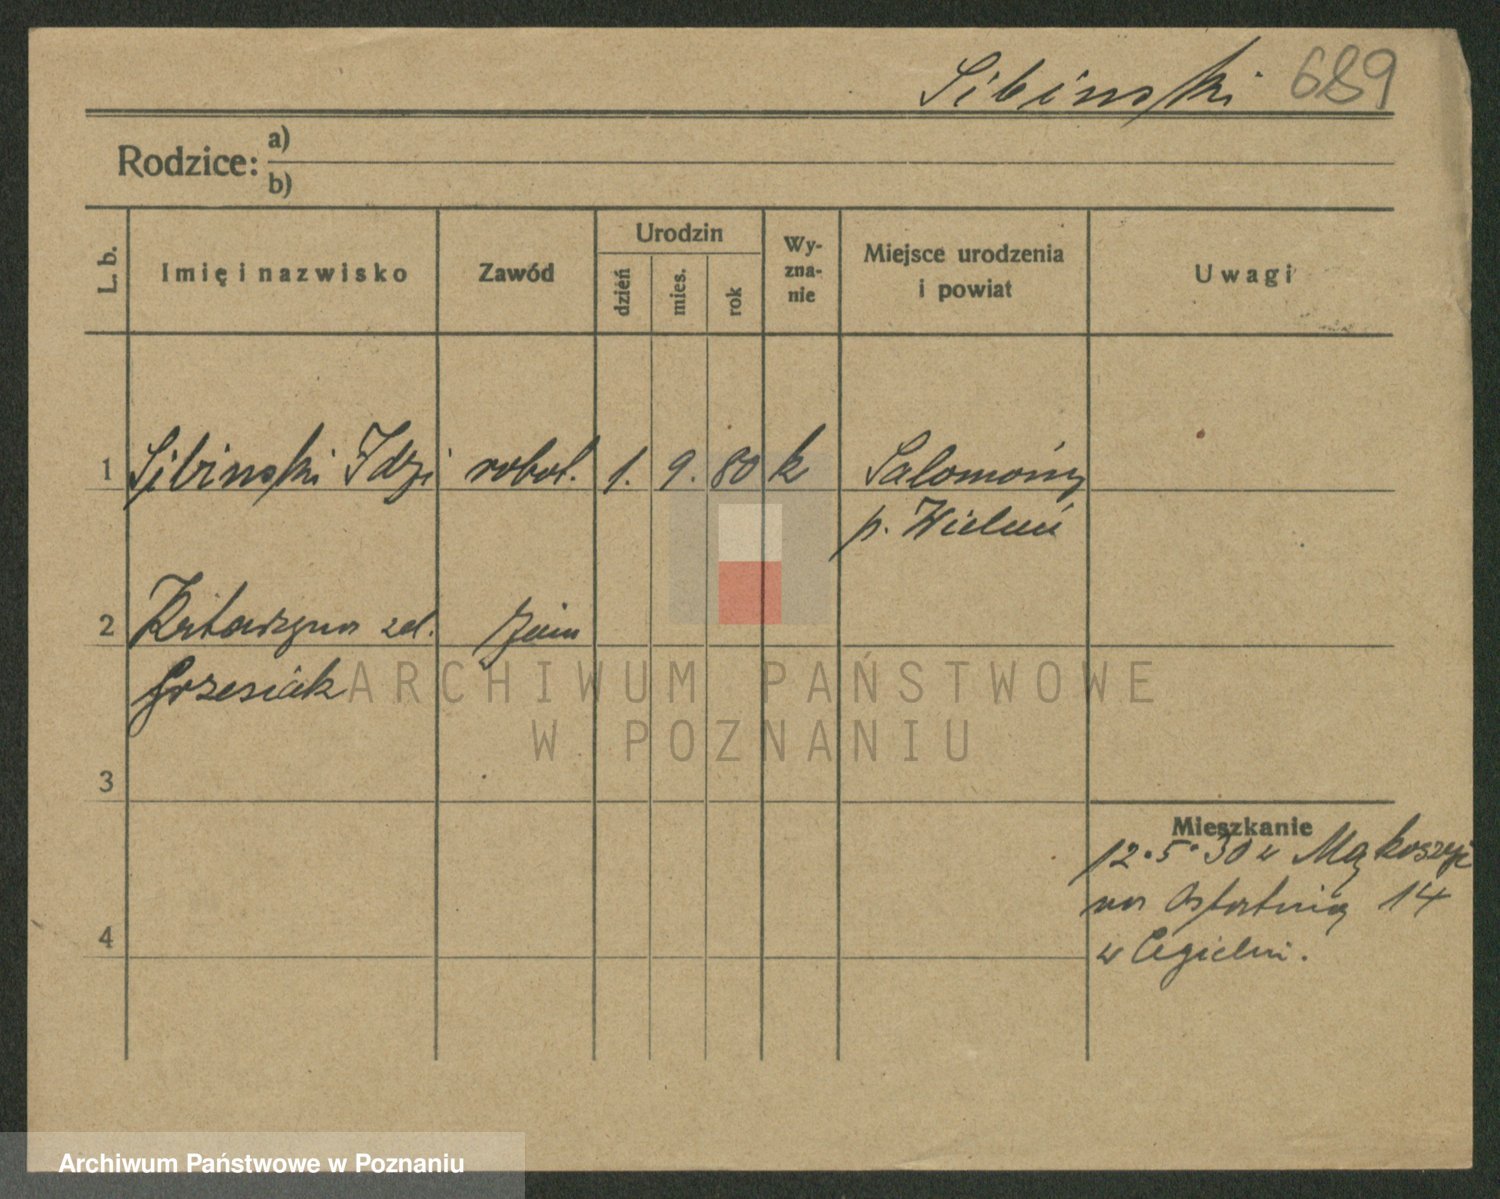 Sibinski 689
Rodzice: a)
b)
L. b. Imię i nazwisko Zawód Urodzin dzień mies. rok Wy-zna-nie Miejsce urodzenia i powiat Uwagi
1 Sibinski Idzi robot. 1. 9. 80 k Salomony
p. Wieluń
2 Katarzyna zd.
Grzesiak
3
Mieszkanie
12.5.30 z Mąkoszyc
na Ostatnią 14
w Cegielni.
4
ARCHIWUM PAŃSTWOWE
W POZNANIU
Archiwum Państwowe w Poznaniu